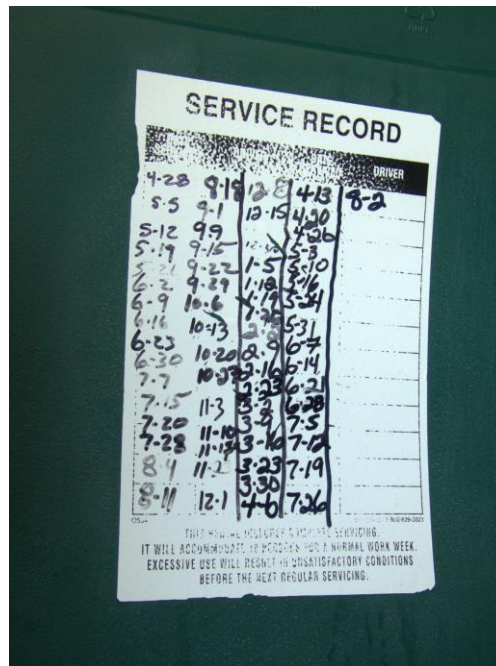 SERVICE RECORD
DRIVER
4-28 8-18 12-8 4-13 8-2
5-5 9-1 12-15 4-20
5-12 9-9 4-26
5-19 9-15 5-3
9-22 1-5 5-10
6-2 9-29 1-12 5-16
6-9 10-6 1-19 5-24
6-16 10-13 5-31
6-23 10-20 2-9 6-7
6-30 10-27 2-16 6-14
7-7 2-23 6-21
7-15 11-3 3-2 6-28
7-20 11-10 3-9 7-5
7-28 11-17 3-16 7-12
8-4 3-23 7-19
3-30
8-11 12-1 4-6 7-26
SERVICING.
IT WILL ACCOMMODATE 10 PERSONS FOR A NORMAL WORK WEEK.
EXCESSIVE USE WILL RESULT IN UNSATISFACTORY CONDITIONS
BEFORE THE NEXT REGULAR SERVICING.